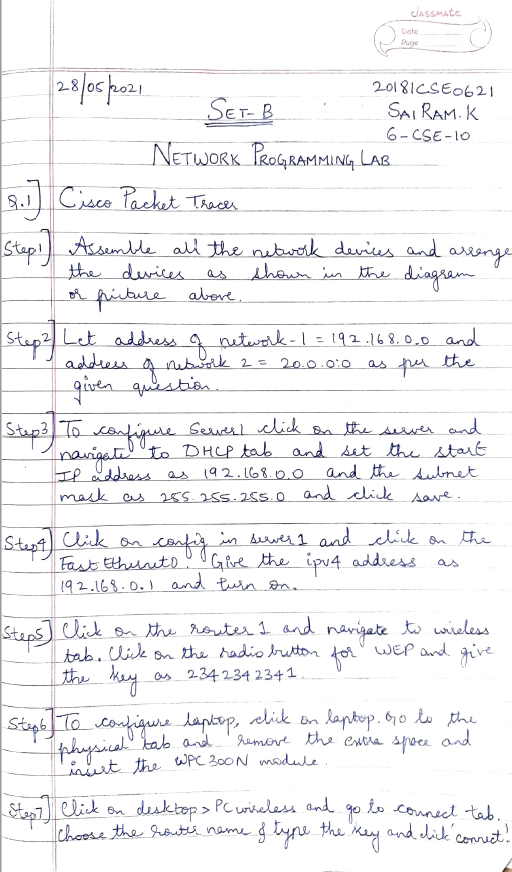 classmate
Date
Page
28/05/2021
20181CSE0621
SET-B
SAI RAM.K
6-CSE-10
NETWORK PROGRAMMING LAB
Q.1] Cisco Packet Tracer
Step1] Assemble all the network devices and arrange
the devices as shown in the diagram
or picture above.
Step2] Let address of network-1 = 192.168.0.0 and
address of network 2 = 20.0.0.0 as per the
given question.
Step3] To configure Server1 click on the server and
navigate to DHCP tab and set the start
IP address as 192.168.0.0 and the subnet
mask as 255.255.255.0 and click save.
Step4] Click on config in server1 and click on the
FastEthernet0. Give the ipv4 address as
192.168.0.1 and turn on.
Step5] Click on the router 1 and navigate to wireless
tab. Click on the radio button for WEP and give
the key as 2342342341.
Step6] To configure laptop, click on laptop. Go to the
physical tab and remove the extra space and
insert the WPC300N module.
Step7] Click on desktop > PC wireless and go to connect tab.
Choose the router name & type the key and click 'connect'.